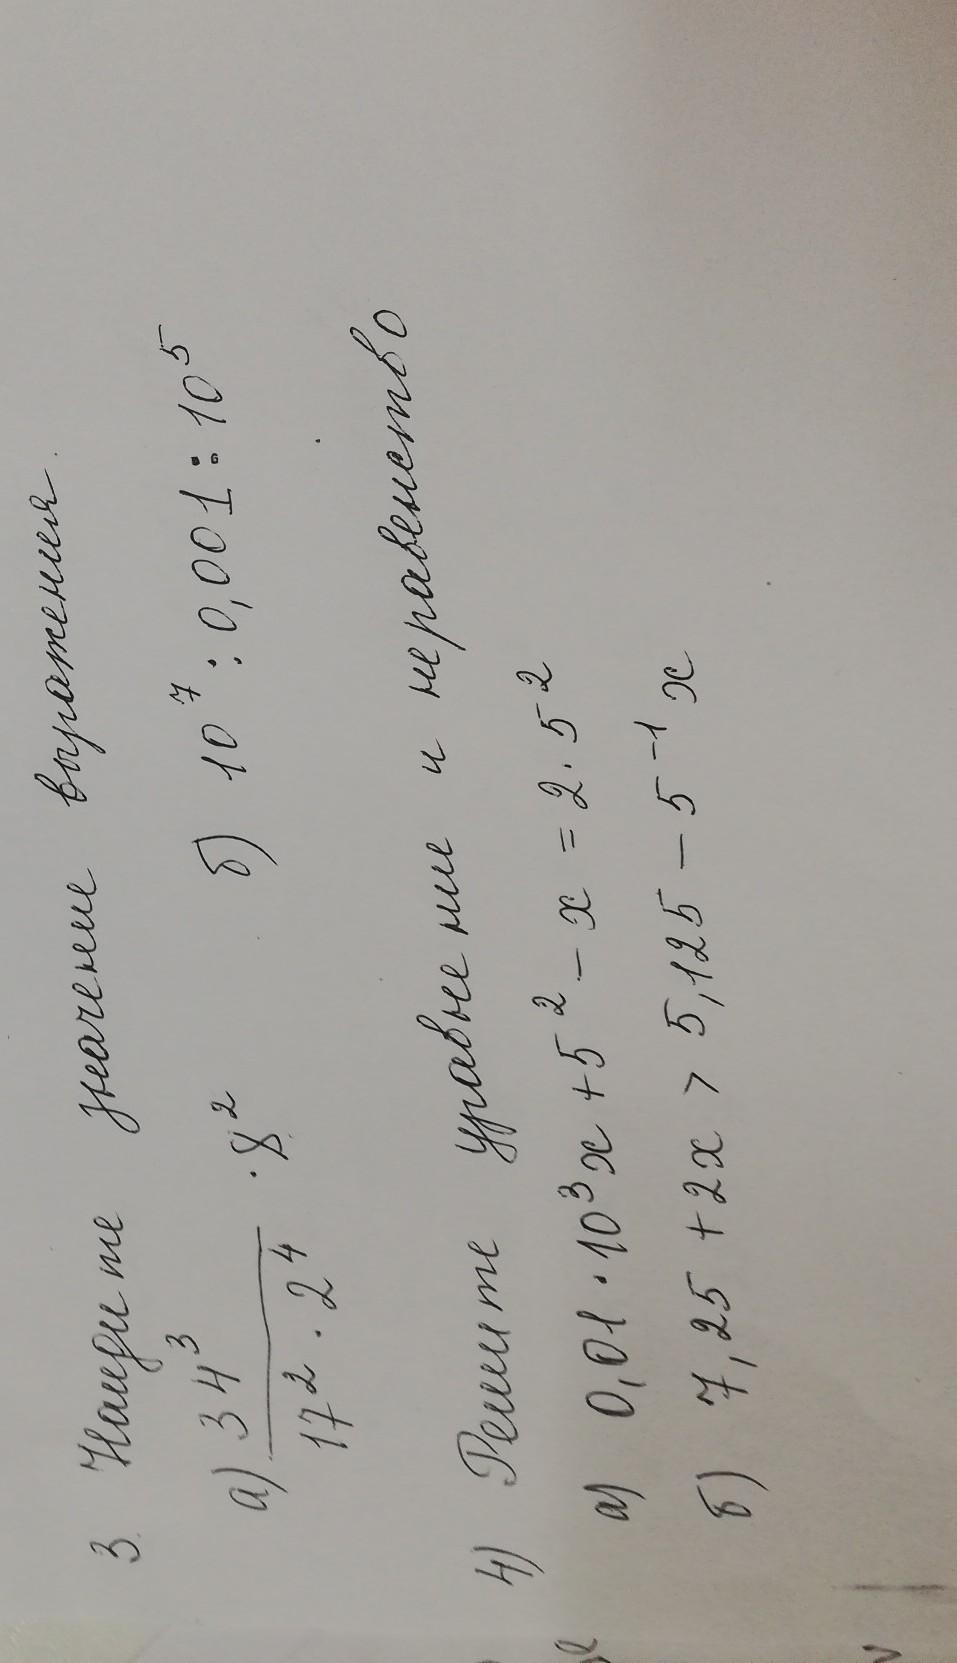 3. Найдите значение выражения.
а) 34³ / 17² · 2⁴ · 8² б) 10⁷ : 0,001 : 10⁵
4) Решите уравнение и неравенство
а) 0,01 · 10³x + 5² − x = 2 · 5²
б) 7,25 + 2x > 5,125 − 5⁻¹x